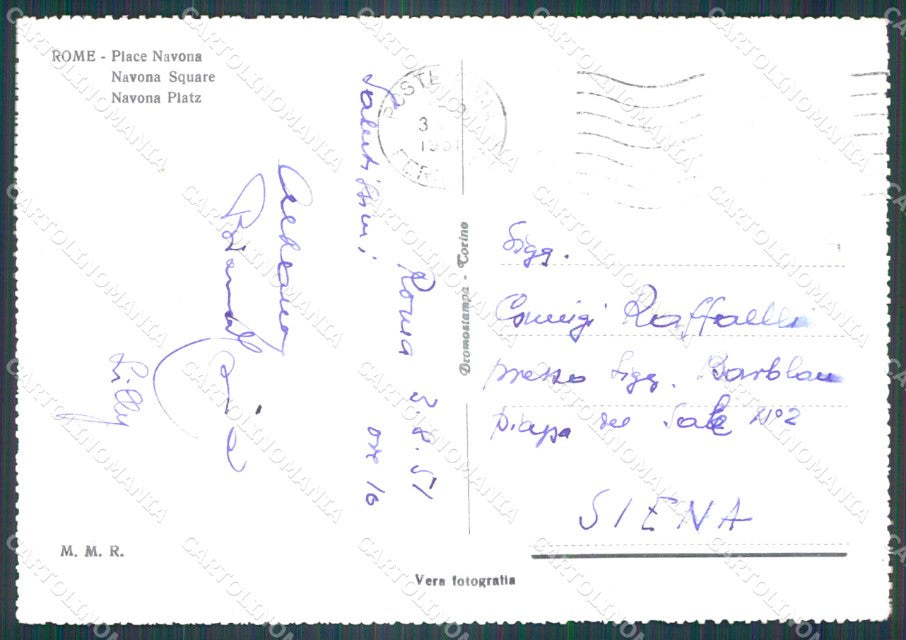 ROME - Place Navona
Navona Square
Navona Platz
POSTE
3
1951
FERR
Roma 3.8.51
ore 10
Salutissimi
Lilly
Dromostampa - Torino
Sigg.
Coniugi Raffaelli
presso Sigg. Barblan
Piazza del Sale N°2
SIENA
M. M. R.
Vera fotografia
CARTOLINOMANIA